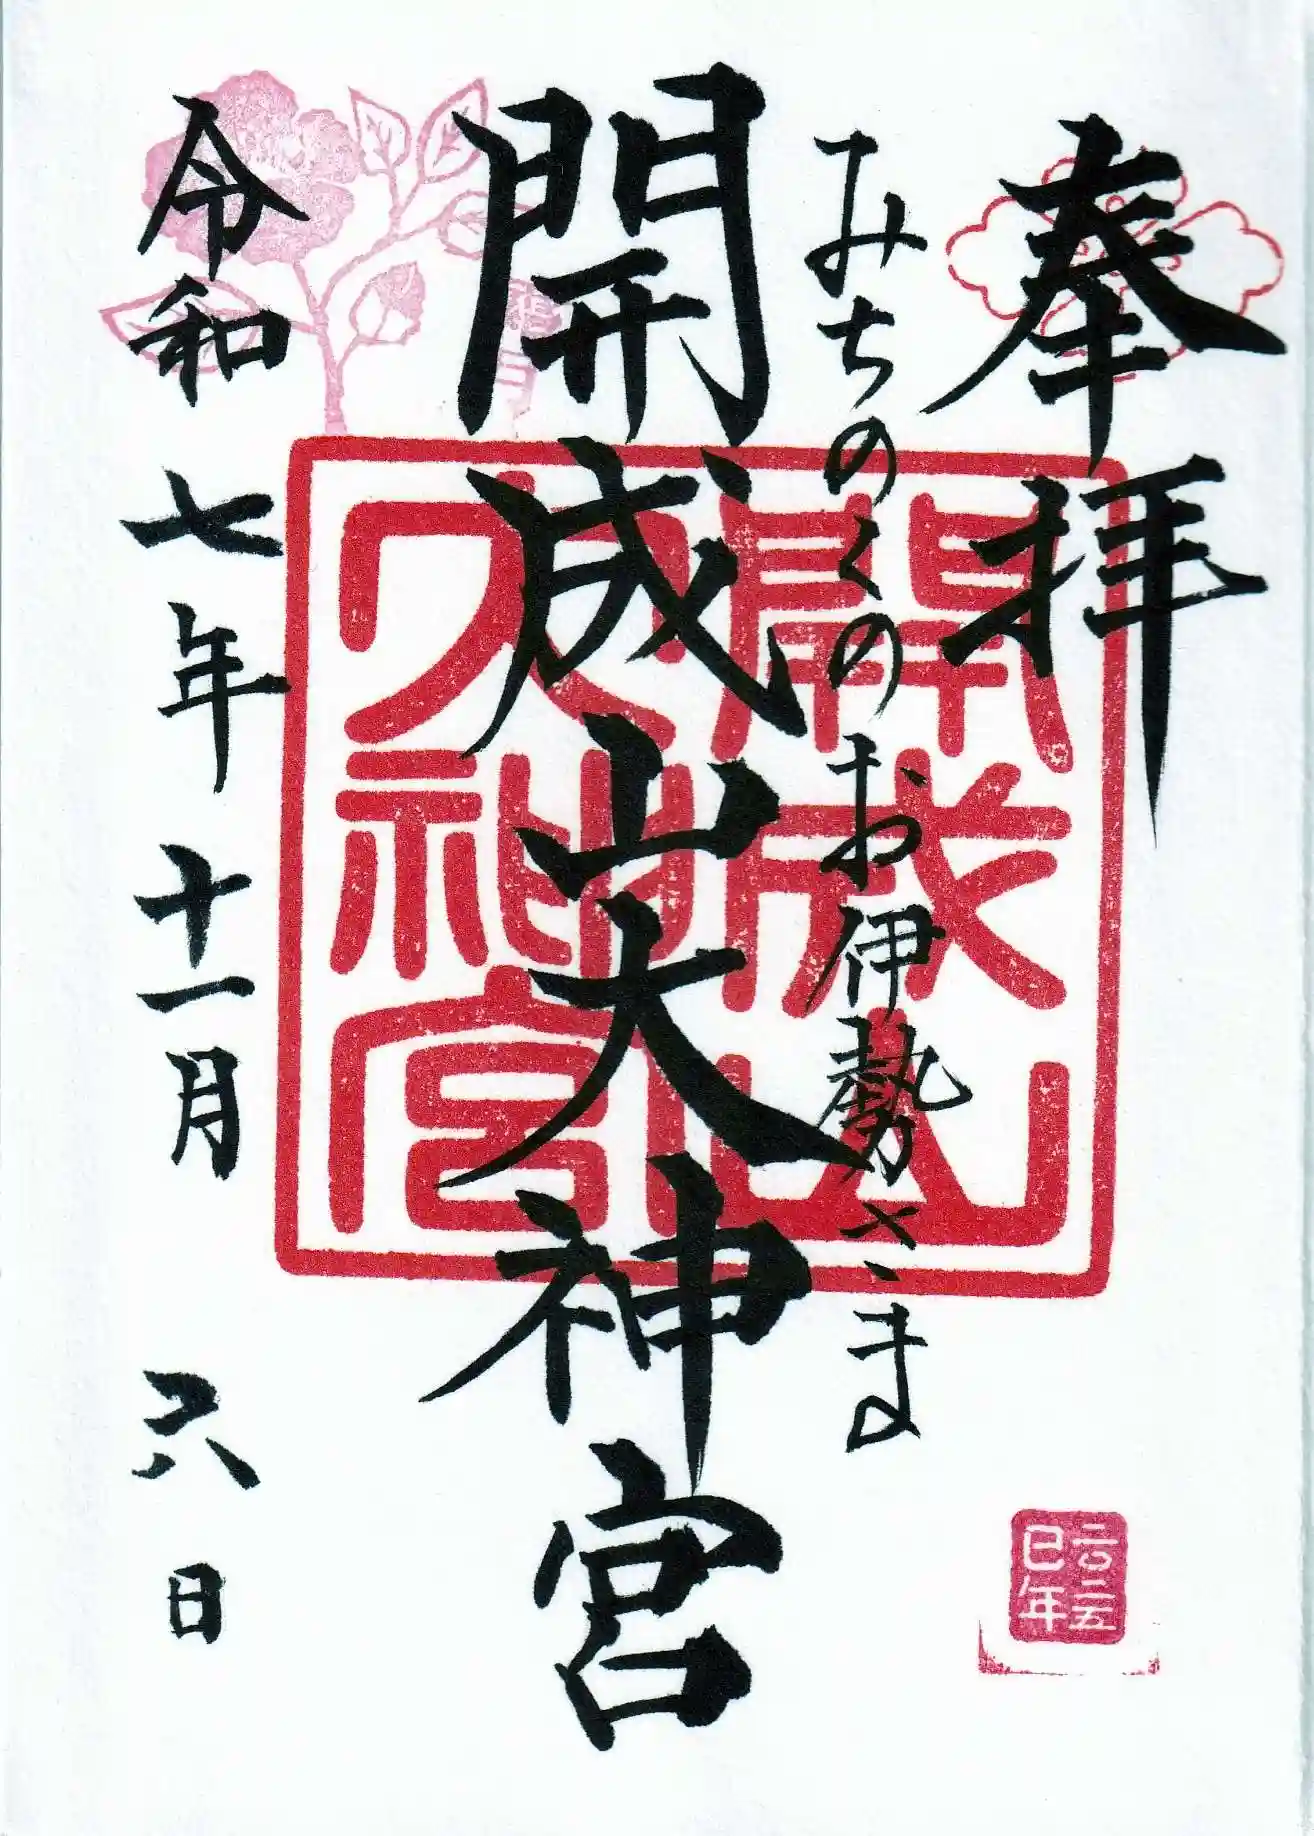 奉拝
みちのくのお伊勢さま
開成山大神宮
令和七年十一月六日
開成山
大神宮
二〇二五
巳年